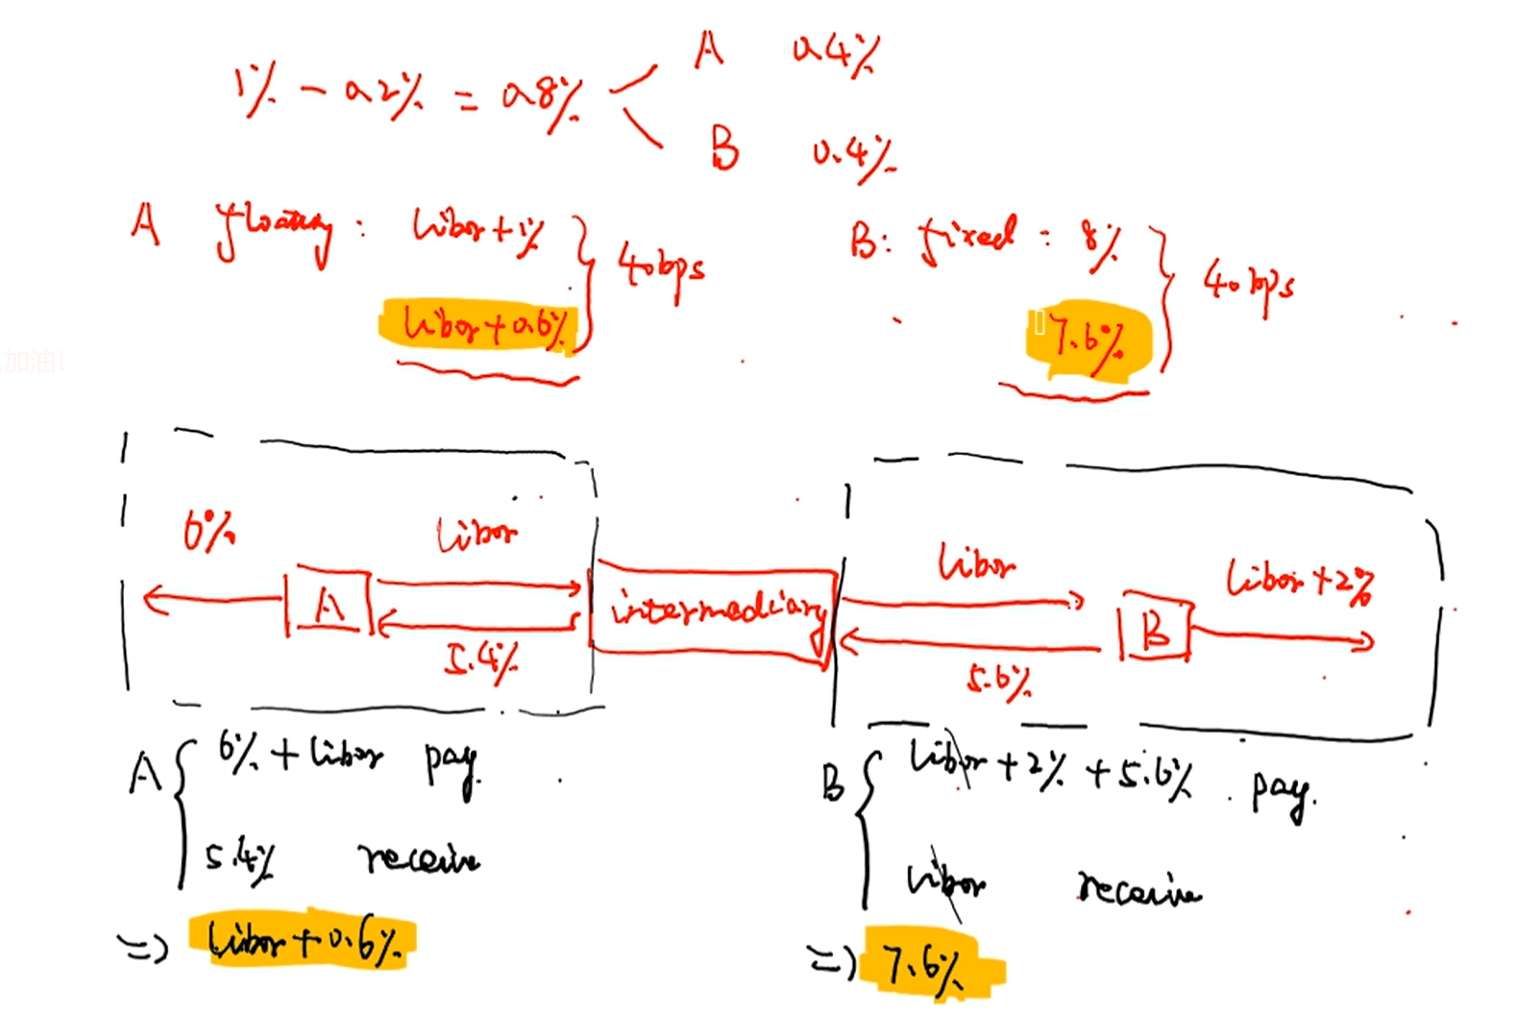 1% - 0.2% = 0.8%
A 0.4%
B 0.4%
A floating: libor + 1%
libor + 0.6%
40bps
B: fixed: 8%
7.6%
40bps
加油!
6%
A
libor
5.4%
intermediary
libor
5.6%
B
libor + 2%
A
6% + libor pay.
5.4% receive
=> libor + 0.6%
B
libor + 2% + 5.6% pay.
libor receive
=> 7.6%